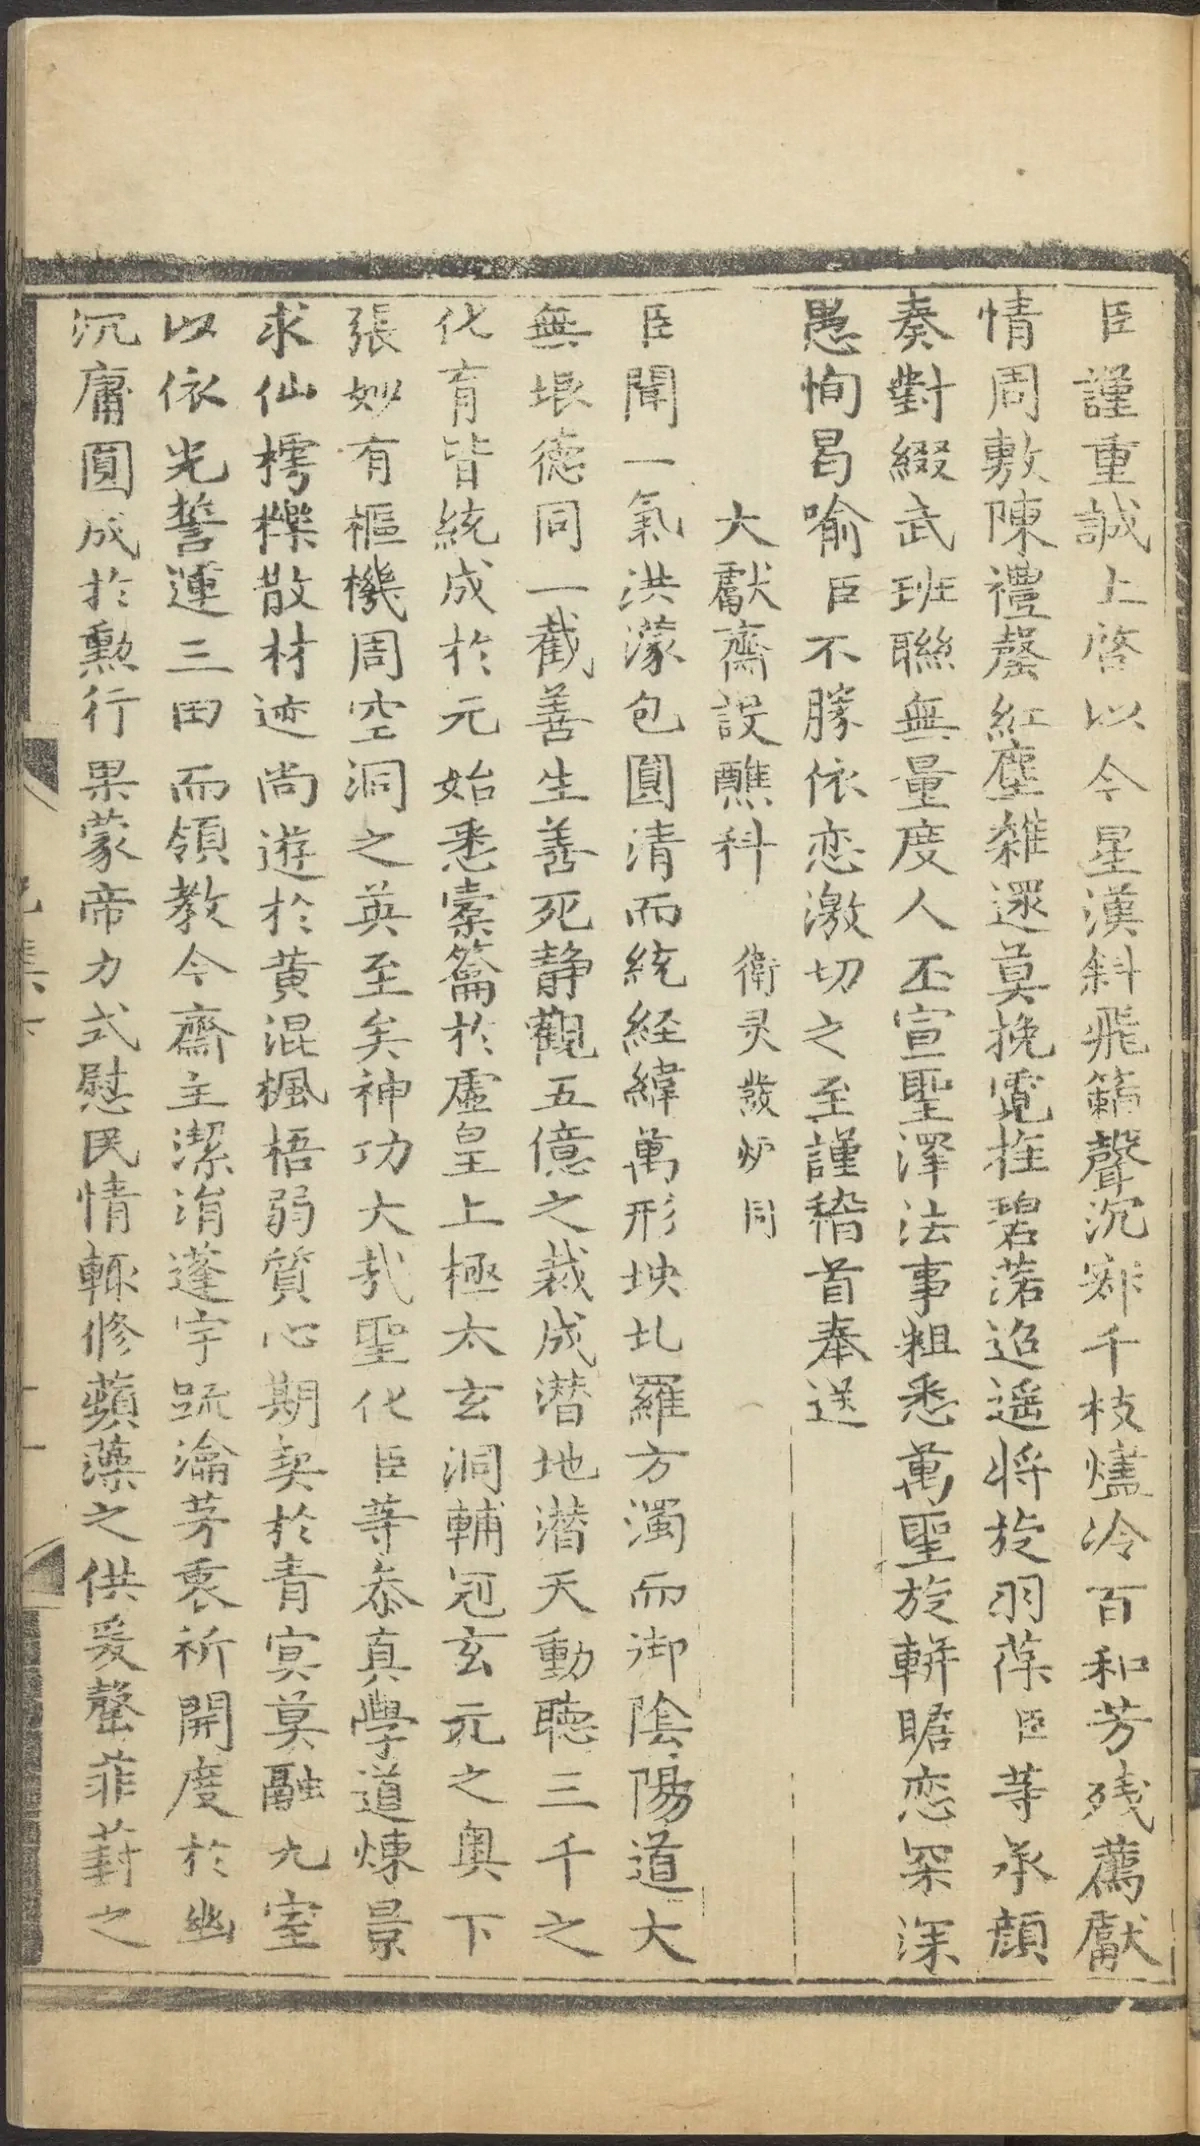 臣謹重誠上啓以今星漢斜飛籟聲沉寂千枝爐冷百和芳残薦獻
情周敷陳禮罄紅塵雜遝莫挽霓旌碧落迢遥将旋羽葆臣等承顔
奏對綴武班聯無量度人丕宣聖澤法事粗悉萬聖旋軿瞻恋罙深
愚恂曷喻臣不勝依恋激切之至謹稽首奉送
大獻齋設醮科 衛灵發炉同
臣聞一氣洪濛包圓清而統経緯萬形坱圠羅方濁而御陰陽道大
無垠德同一截善生善死静觀五億之裁成潜地潜天動聽三千之
化育皆統成於元始悉橐籥於虛皇上極太玄洞輔冠玄元之奥下
張妙有樞機周空洞之英至矣神功大哉聖化臣等叅真學道煉景
求仙樗櫟散材迹尚遊於黄混楓梧弱質心期契於青冥莫融九室
以依光誓運三田而領教今齋主潔涓蓬宇䟽瀹芳衷祈開度於幽
沉庸圓成於勲行果蒙帝力式慰民情輙修蘋藻之供爰罄菲葑之